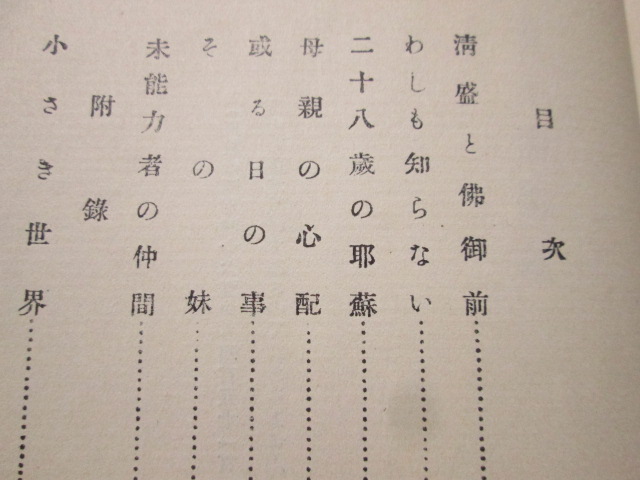 目次
淸盛と佛御前
わしも知らない
二十八歲の耶蘇
母親の心配
或る日の事
その妹
未能力者の仲間
附錄
小さき世界